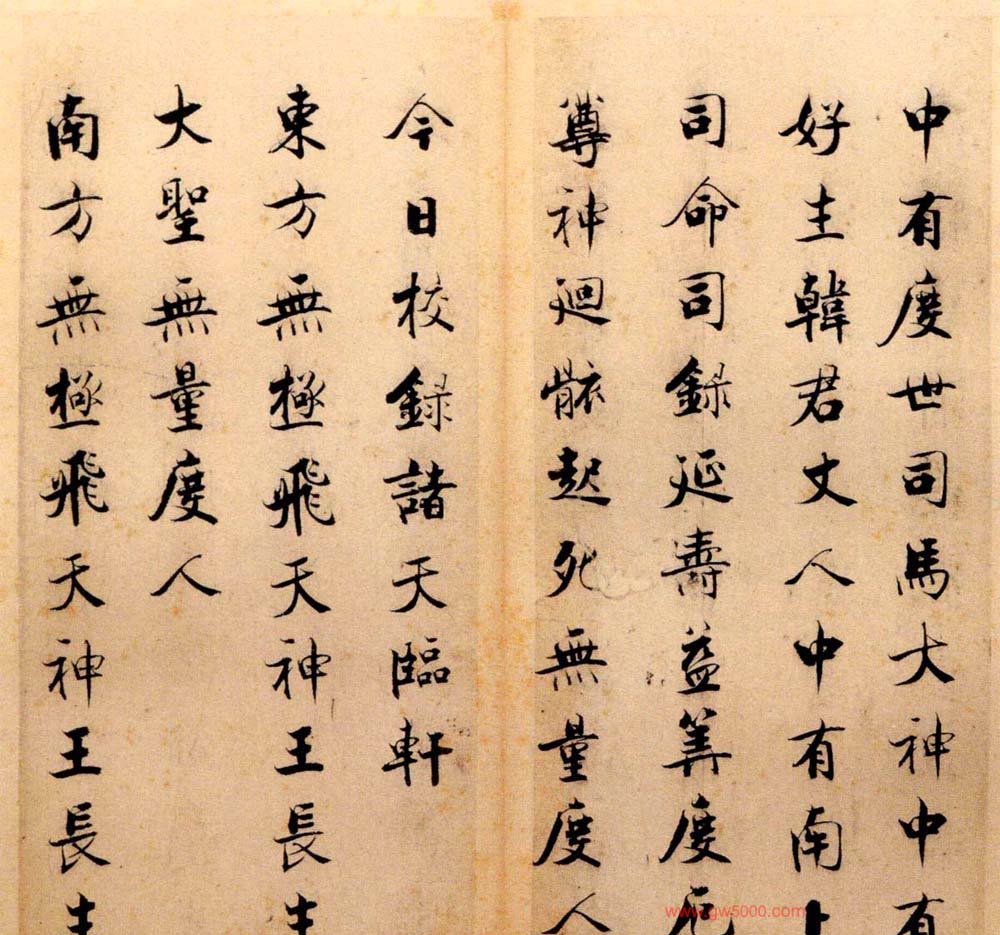 中有度世司馬大神中有
好生韓君丈人中有南上
司命司録延壽益筭度厄
尊神迴骸起死無量度人
今日校録諸天臨軒
東方無極飛天神王長生
大聖無量度人
南方無極飛天神王長生
www.gw5000.com